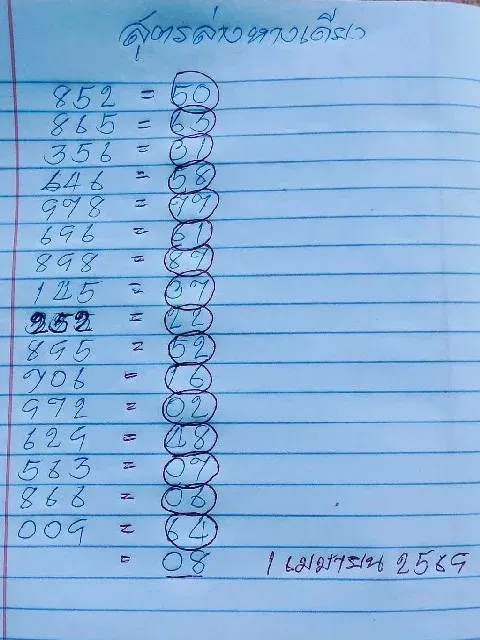 สูตรล่างทางเดียว
852 = 50
865 = 63
356 = 31
646 = 58
978 = 77
696 = 61
898 = 89
125 = 37
252 = 22
895 = 52
706 = 16
972 = 02
629 = 48
563 = 07
866 = 06
009 = 64
= 08 1 เมษายน 2569